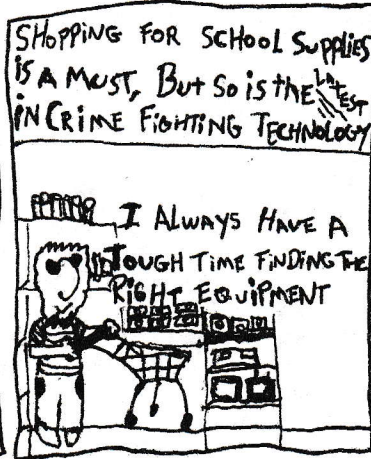 SHOPPING FOR SCHOOL SUPPLIES
IS A MUST, BUT SO IS THE LATEST
IN CRIME FIGHTING TECHNOLOGY
I ALWAYS HAVE A
TOUGH TIME FINDING THE
RIGHT EQUIPMENT